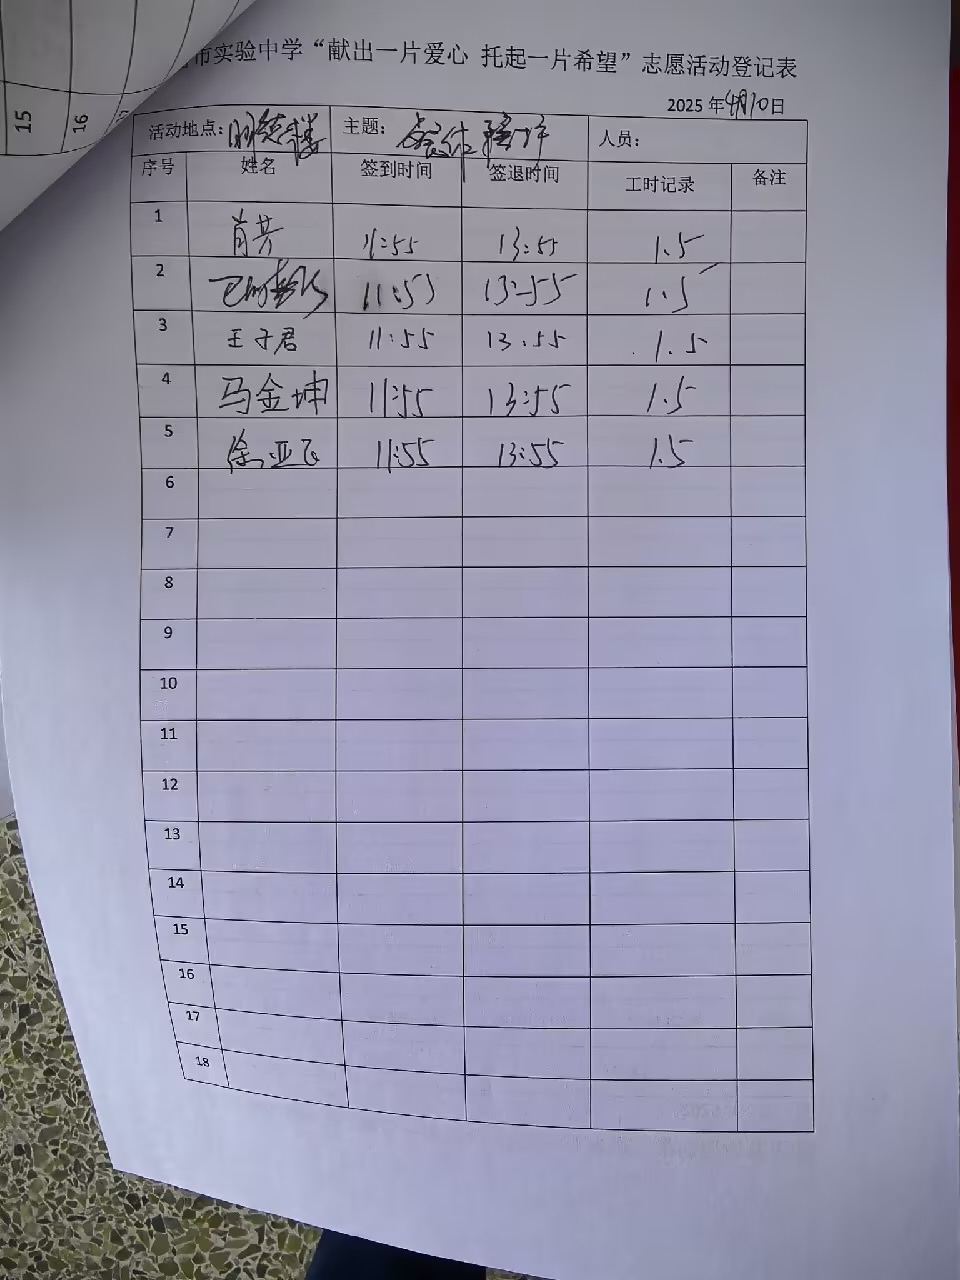 15
16
市实验中学“献出一片爱心 托起一片希望”志愿活动登记表
2025年4月10日
活动地点：明德楼 主题： 人员：
序号 姓名 签到时间 签退时间 工时记录 备注
1 肖芸 11:55 13:55 1.5
2 11:55 13:55 1.5
3 王子君 11:55 13.55 1.5
4 马金坤 11:55 13:55 1.5
5 徐亚飞 11:55 13:55 1.5
6
7
8
9
10
11
12
13
14
15
16
17
18